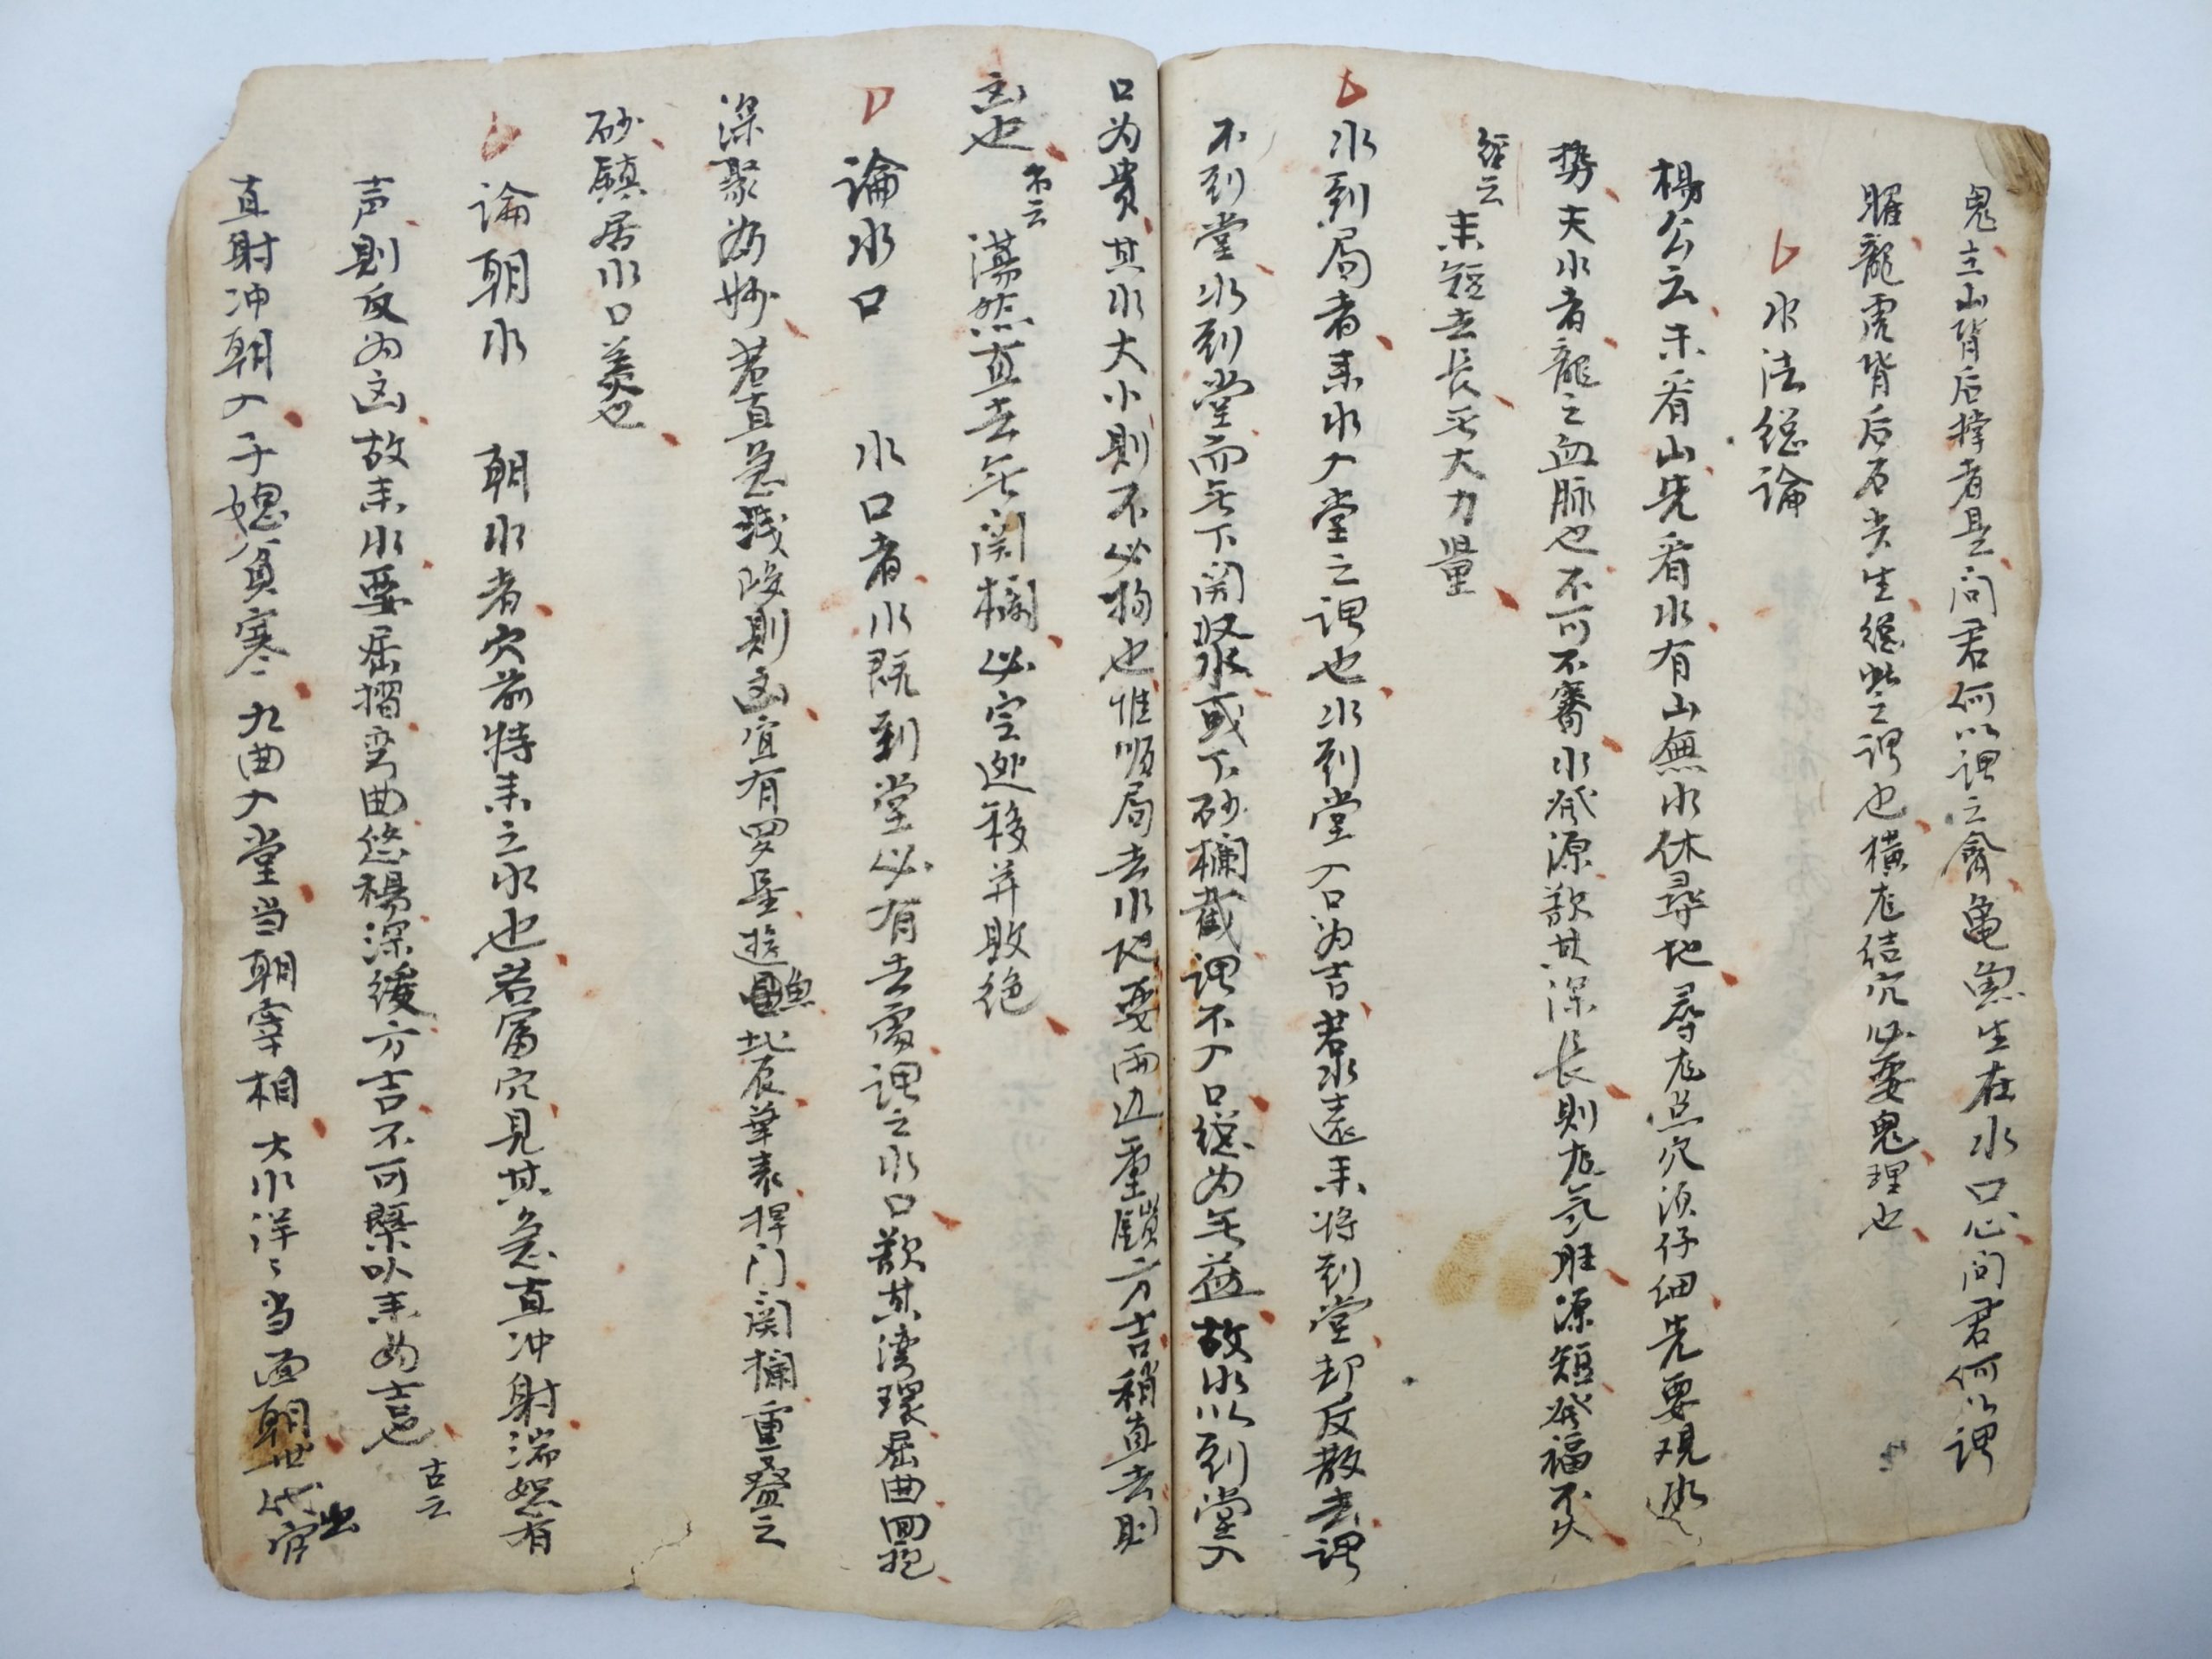 鬼主山背后撑者是问君何以谓之禽龜魚生在水口心问君何以谓
曜龍虎背后石尖生總此之谓也橫龙结穴必要鬼理也
水法総論
楊公云未看山先看水有山無水休尋地尋龙点穴須仔细先要观水
势夫水者龍之血脉也不可不審水發源歆其深長則龙气旺源短發福不久
經云
来短去長无大力量
水到局者来水入堂之谓也水到堂入口为吉若水遠来将到堂却反散去谓
不到堂水到堂而无下関収水或下砂欄截谓不入口総为无益故水以到堂入
口为貴其水大小則不必拘也惟順局去水地要两边重鎖方吉稍直去則
凶也
蕩然直去无関欄必定迯移并敗绝
論水口 水口者水既到堂必有去處谓之水口歆其湾環屈曲囬抱
深聚为妙若直急浅陵則凶宜有罗星遊魚北辰華表捍门関欄重叠之
砂鎮居水口美也
論朝水 朝水者穴前特来之水也若當穴見其急直冲射湍怒有
声則反为凶故来水要屈摺弯曲悠揚深缓方吉不可槩以来为吉也
古云
直射冲朝入子媳貧寒九曲入堂当朝宰相大水洋々当面朝世代出官